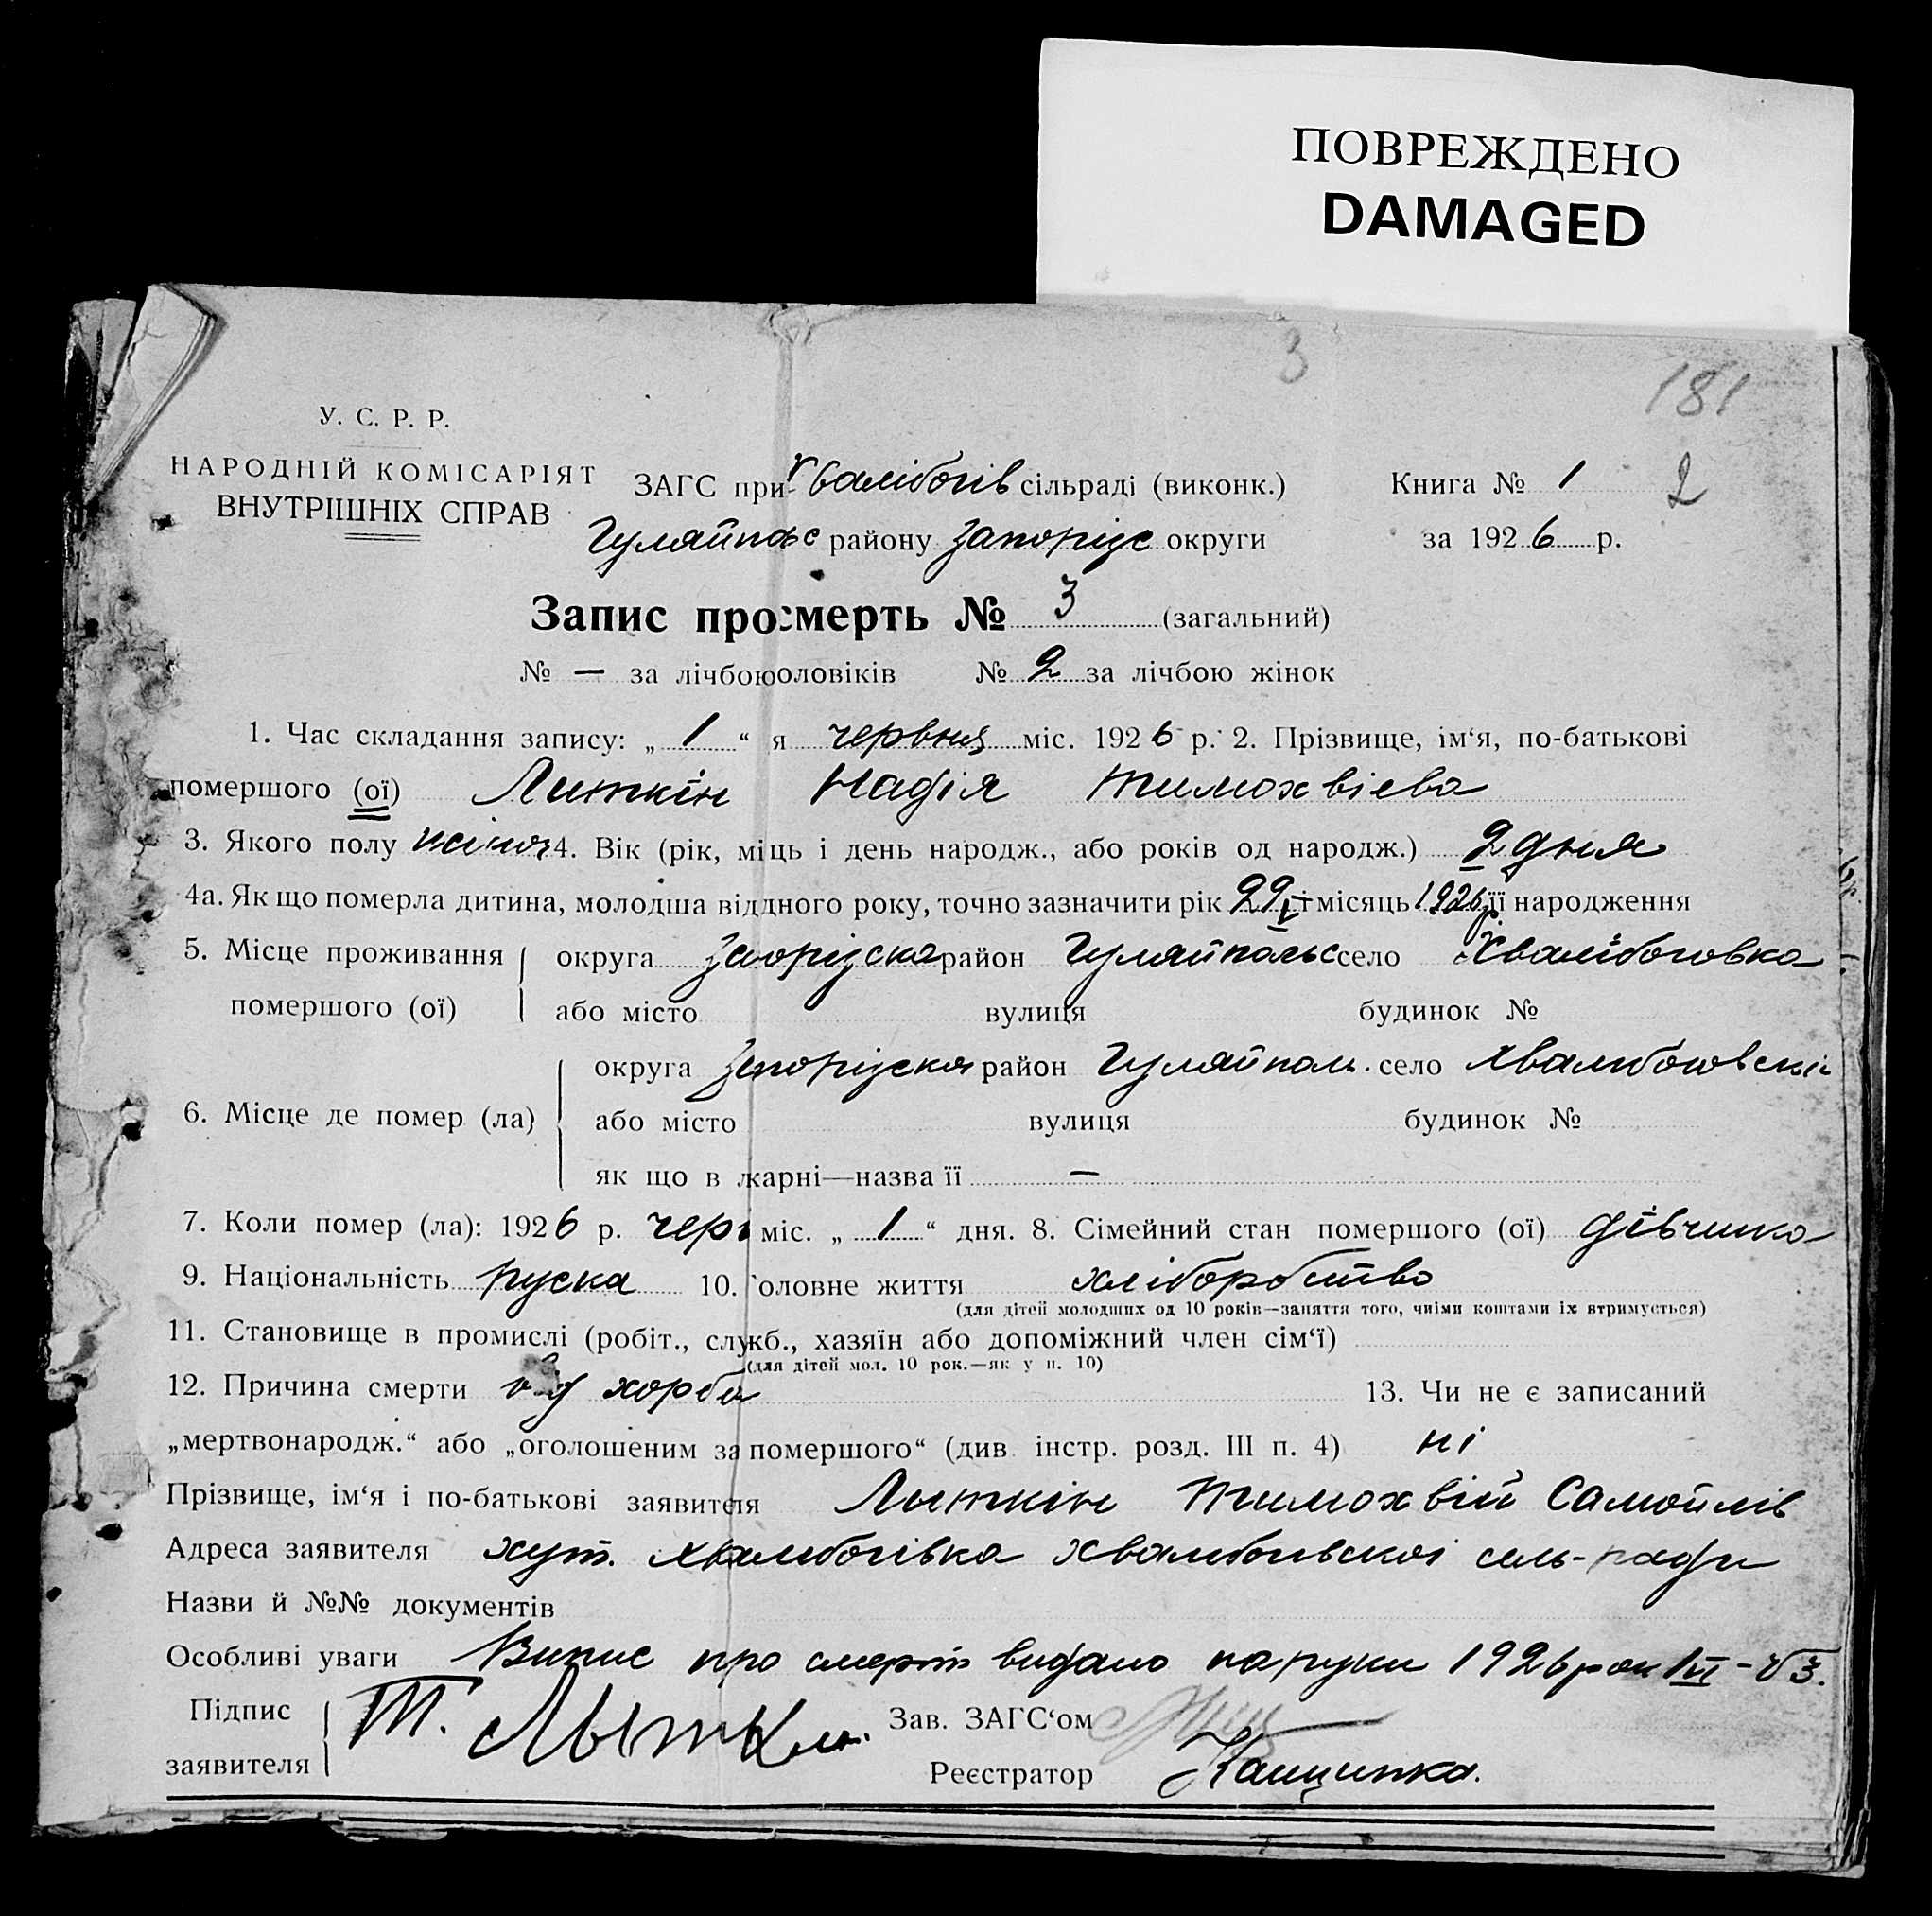 ПОВРЕЖДЕНО
DAMAGED
3
181
У. С. Р. Р.
НАРОДНІЙ КОМІСАРІЯТ
ВНУТРІШНІХ СПРАВ
ЗАГС при Хвалібогів сільраді (виконк.) Книга № 1 2
Гуляйпольс району Запорізс округи за 1926 р.
Запис про смерть № 3 (загальний)
№ — за лічбою оловіків № 2 за лічбою жінок
1. Час складання запису: „ 1 “ я червня міс. 1926 р. 2. Прізвище, ім‘я, по-батькові
помершого (ої) Литкін Надія Тимохвієва
3. Якого полу жіноч 4. Вік (рік, міць і день народж., або років од народж.) 2 дня
4а. Як що померла дитина, молодша від дного року, точно зазначити рік 29 V місяць 1926 р її народження
5. Місце проживання округа Запорізска район Гуляйпольс село Хвалібоговка
помершого (ої) або місто вулиця будинок №
округа Запорізская район Гуляйполь. село
6. Місце де помер (ла) або місто вулиця будинок №
як що в карні—назва її —
7. Коли помер (ла): 1926 р. черв міс. „ 1 “ дня. 8. Сімейний стан помершого (ої) дівчина
9. Національність руска 10. оловне життя хліборобство
(для дітей молодших од 10 років—заняття того, чиїми коштами їх втримується)
11. Становище в промислі (робіт., служб., хазяїн або допоміжний член сім‘ї)
(для дітей мол. 10 рок.—як у п. 10)
12. Причина смерти від хорба 13. Чи не є записаний
„мертвонародж.“ або „оголошеним за помершого“ (див. інстр. розд. III п. 4) ні
Прізвище, ім‘я і по-батькові заявителя Лыткін Тимохвій Самойлів
Адреса заявителя хут. Хвалибогівка Хвалибогівскоі сель-ради
Назви й №№ документів
Особливі уваги Випис про смерть видано на руки 1926 рок 1 VI - № 3.
Підпис
заявителя Т. Лыткин. Зав. ЗАГС‘ом
Реєстратор